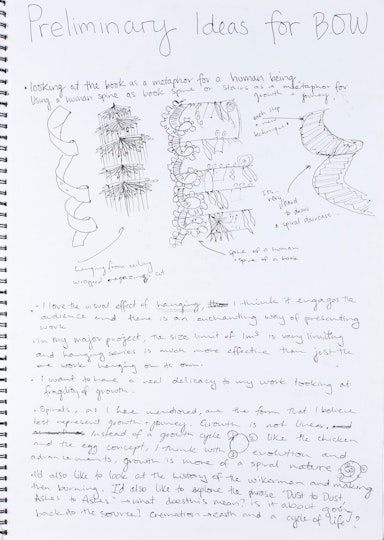 Preliminary Ideas for BOW
• looking at the book as a metaphor for a human being.
Using a human spine as book spine or stairs as a metaphor for
growth + journey.
each step
a new
technique
It's
very
hard
to draw
a spiral staircase
spine of a human
spine of a book
Hanging from ceiling
cut
• I love the visual effect of hanging, I think it engages the
audience and there is an enchanting way of presenting
work
• In my major project, the size limit of 1m³ is very limiting
and hanging series is much more effective than just the
one work hanging on its own.
• I want to have a real delicacy to my work looking at
fragility of growth.
• Spirals, as I have mentioned, are the form that I believe
best represent growth + journey. Growth is not linear,
Instead of a growth cycle like the chicken
and the egg concept, I think with evolution and
advancements, growth is more of a spiral nature
• I'd also like to look at the history of the wikerman and making
then burning. I'd also like to explore the phrase 'Dust to Dust,
Ashes to Ashes' → what does this mean? is it about going
back to the source? Cremation → earth and a cycle of life?